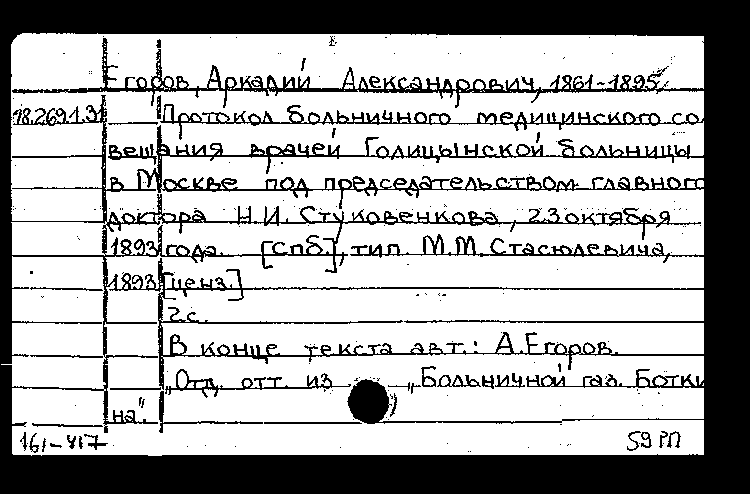 Егоров, Аркадий Александрович, 1861-1895,
18.269.1.31 Протокол больничного медицинского со
вещания врачей Голицынской больницы
в Москве под председательством главного
доктора Н.И. Стуковенкова, 23 октября
1893 года. [Спб.], тип. М.М. Стасюлевича,
1893 [ценз.]
2с.
В конце текста авт.: А.Егоров.
„Отд. отт. из „Больничной газ. Ботки
на".
161-417 59 РП